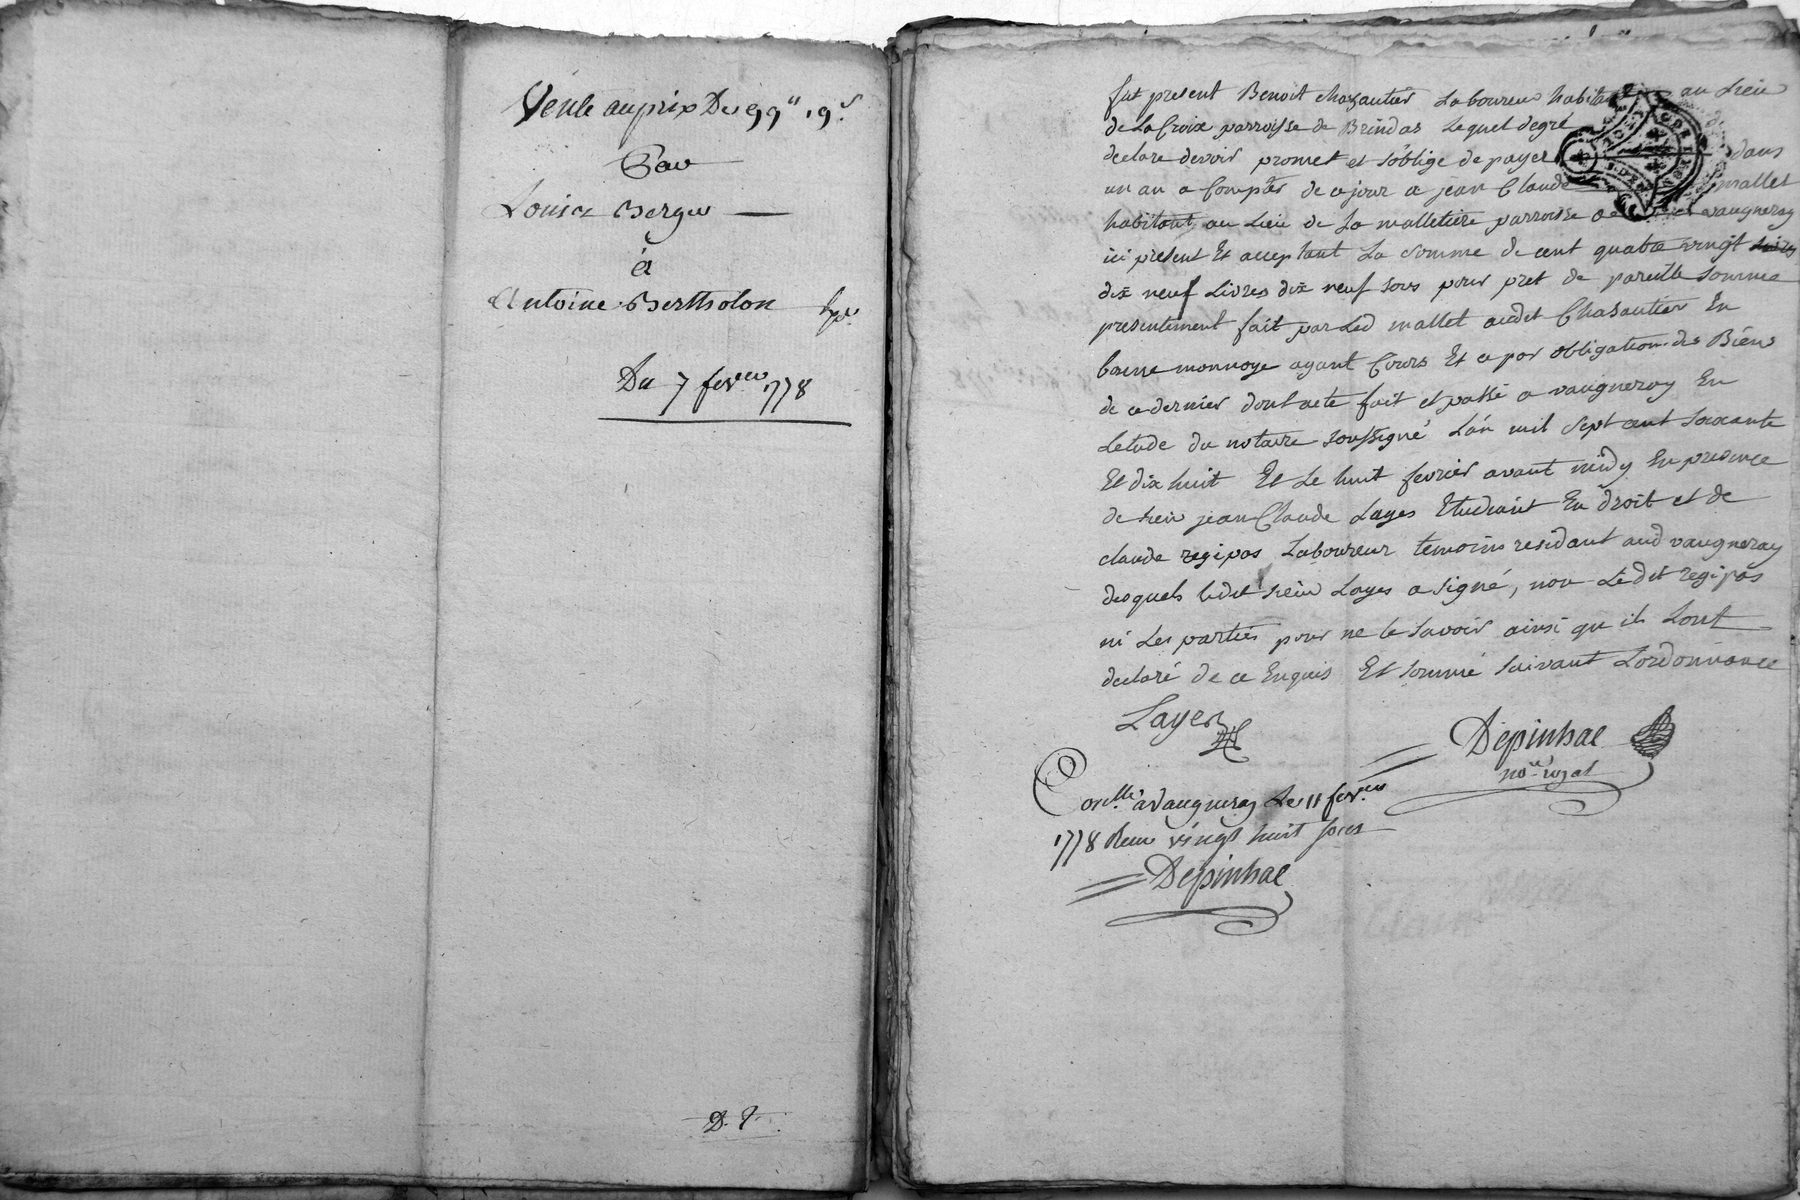 Vente au prix De 99ll 19s
Par
Louis Berger
à
Antoine Bertholon
Du 7 fevrier 1778
D. T.
fut present Benoit chazautier Laboureur habitant au Lieu
de La Croix parroisse de Brindas Lequel de gré
declare devoir promet et s'oblige de payer dans
un an a Compter de ce jour a jean Claude mallet
habitant au Lieu de La malletiere parroisse de vaugneray
ici present Et acceptant La somme de cent quatre vingt
dix neuf Livres dix neuf sous pour pret de pareille somme
presentement fait par Led mallet audit Chasautier En
bonne monnoye ayant Cours Et ce par obligation des Biens
de ce dernier dont acte fait et passé a vaugneray En
Letude du notaire soussigné L'an mil sept cent soixante
Et dix huit Et Le huit fevrier avant midy En presence
de sieur jean Claude Layes Etudiant En droit et de
claude regipas Laboureur temoins residant aud vaugneray
desquels ledit sieur Layes a signé, non Ledit regipas
ni Les parties pour ne le savoir ainsi qu'ils L'ont
declaré de ce Enquis Et sommé suivant L'ordonnance
Layes
Depinhac
nore royal
Conllé à Vaugneray Le 11 fevrier
1778 Recu vingt huit sous
Depinhac